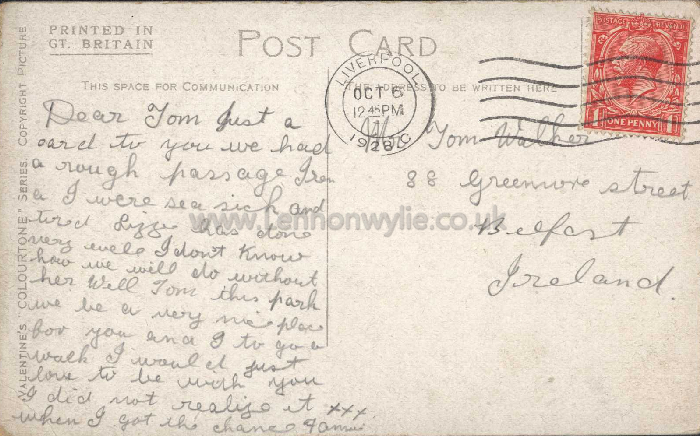 PRINTED IN
GT. BRITAIN
POST CARD
THIS SPACE FOR COMMUNICATION
THE ADDRESS TO BE WRITTEN HERE
VALENTINE'S "COLOURTONE" SERIES. COPYRIGHT PICTURE
LIVERPOOL
OCT 6
12.45 PM
1928
POSTAGE REVENUE
ONE PENNY
Dear Tom Just a
card to you we had
a rough passage
a I were sea sick and
tired Lizzie has done
very well I don't know
how we will do without
her Well Tom this park
we be a very nice place
for you and I to go a
walk I would just
love to be with you
I did not realize it xxx
when I got the chance
Tom Walker
88 Greenmore street
Belfast
Ireland.
www.lennonwylie.co.uk